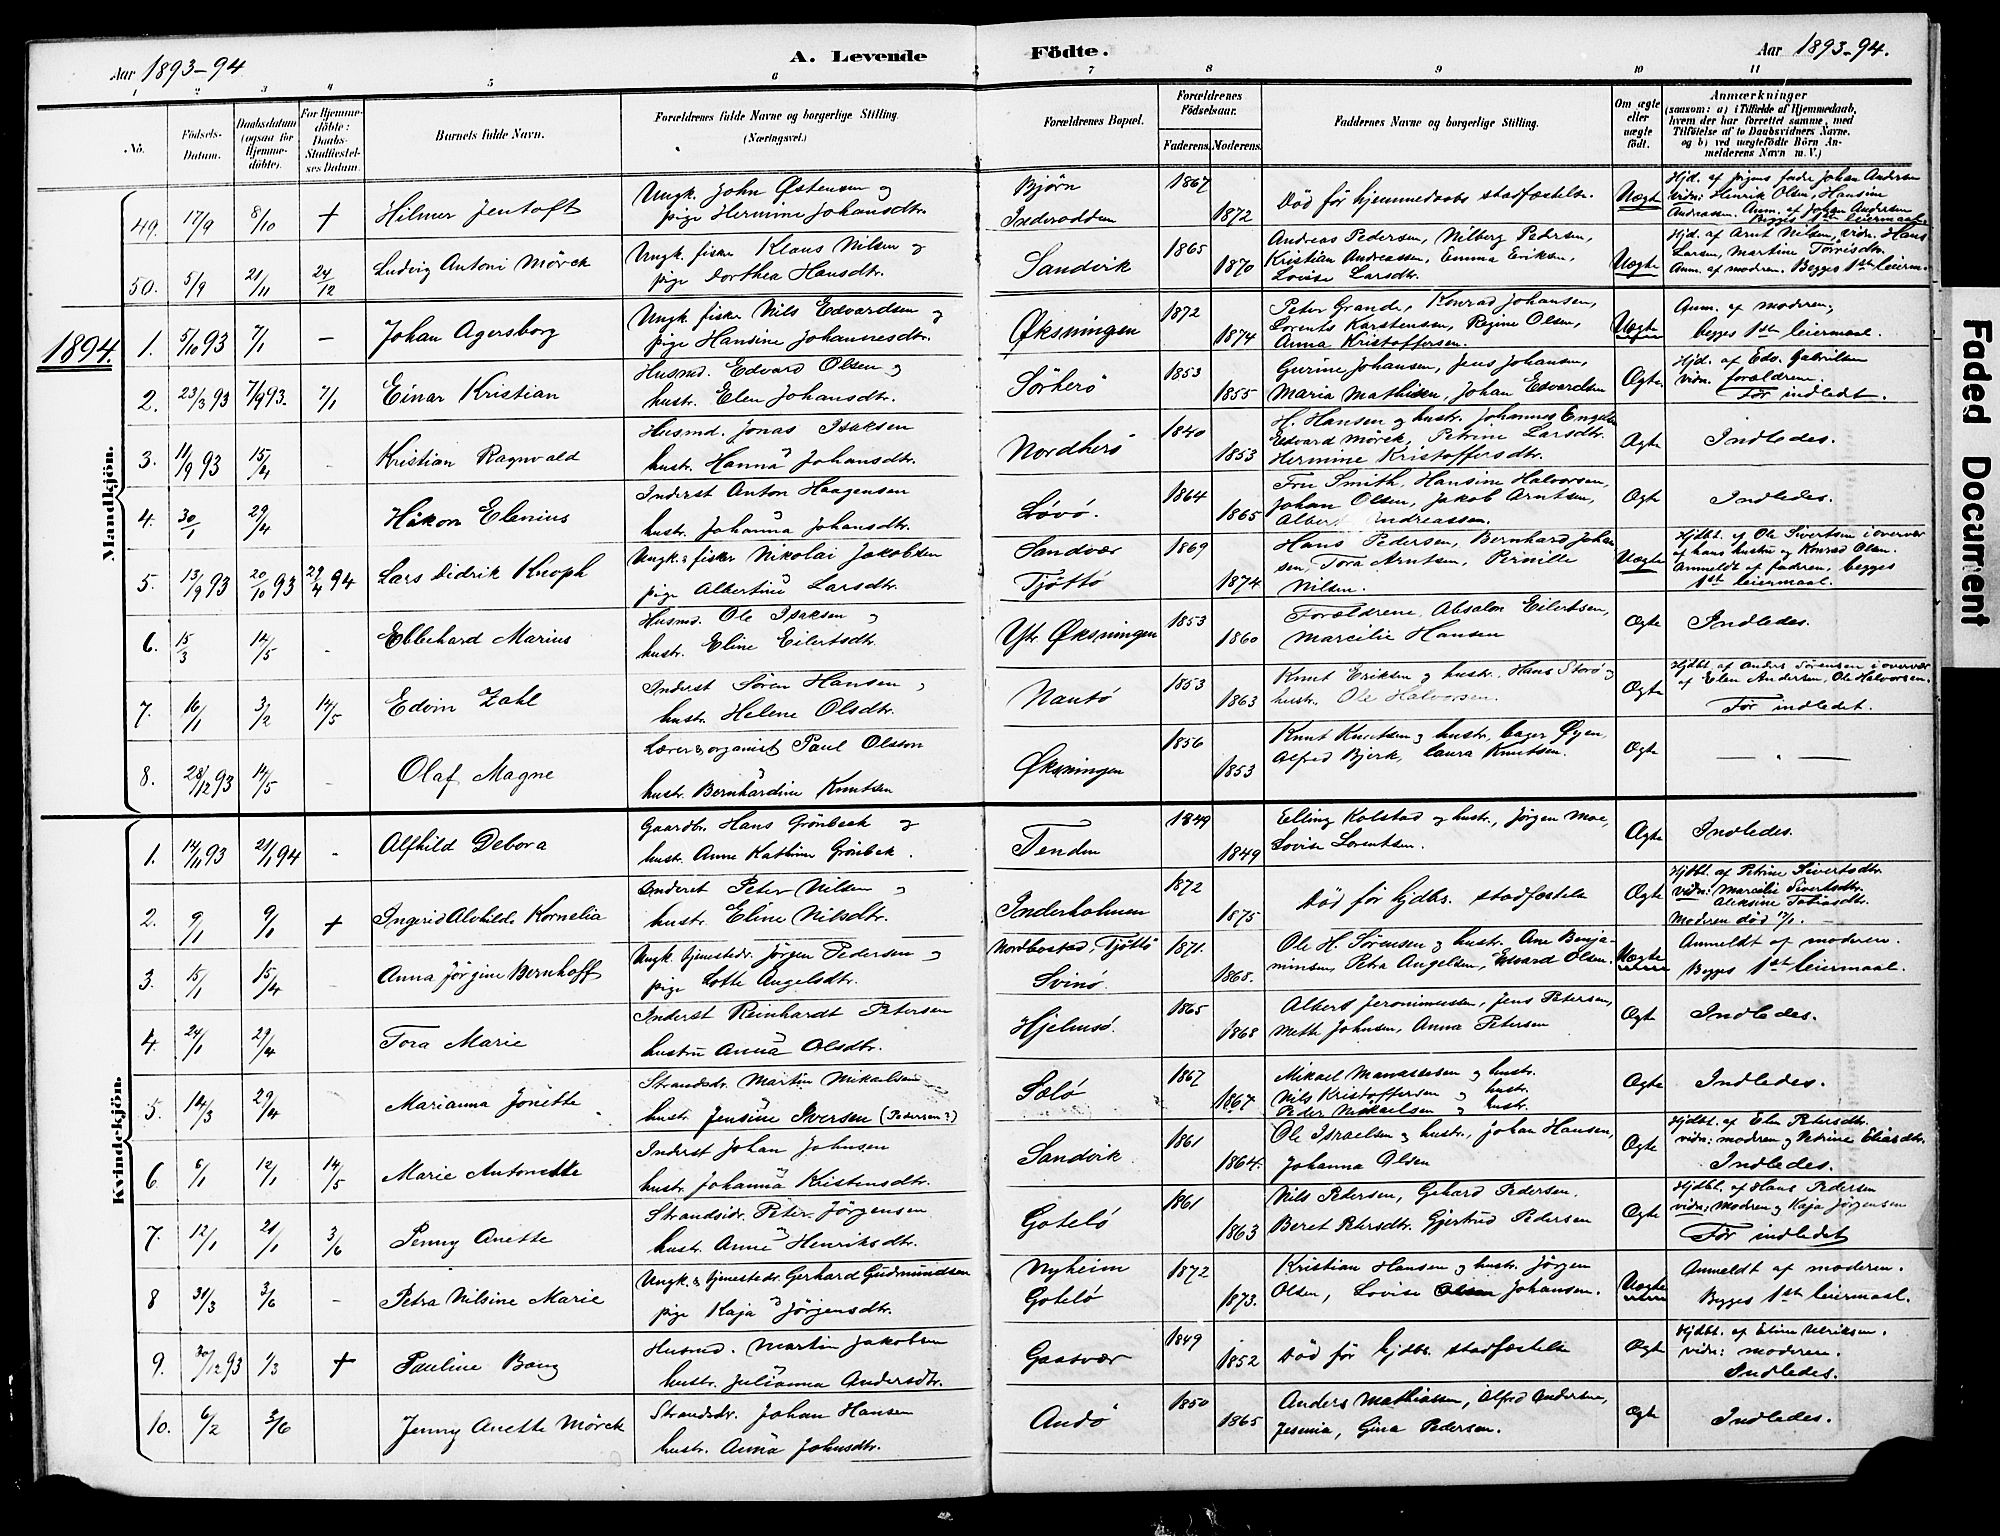 Aar 1893-94
A. Levende Födte.
Aar 1893-94.
1 2 3 4 5 6 7 8 9 10 11
No.
Födsels-Datum.
Daabsdatum (ogsaa for Hjemmedöbte).
For Hjemmedöbte: Daabs-Stadfæstelses Datum.
Barnets fulde Navn.
Forældrenes fulde Navne og borgerlige Stilling. (Næringsvei.)
Forældrenes Bopæl.
Forældrenes Födselsaar.
Faderens. Moderens.
Faddernes Navne og borgerlige Stilling.
Om ægte eller uægte födt.
Anmærkninger
(saasom: a) i Tilfælde af Hjemmedaab, hvem der har forrettet samme, med Tilföielse af to Daabsvidners Navne, og b) ved uægtefödte Börn Anmelderens Navn m. V.)
49. 17/9 8/10 + Hilmer Jentoft
Ungk. John Østensen og
pige Hermine Johansdtr.
Bjørn
Inderodden
1867 1872
Død før hjemmedaabs stadfæstelse.
Uægte
Hjd. af pigens fader Johan Andersen
vidn: Henrik Olsen, Hansine
Andreassen. Anm. af Johan Andersen
Begges 1ste leiermaal.
50. 5/9 21/11 24/12 Ludvig Antoni Mörck
Ungk. fisker Klaus Nilsen og
pige Dorthea Hansdtr.
Sandvik
1865 1870
Andreas Pedersen, Nilberg Pedersen,
Kristian Andreassen, Emma Eriksen,
Lovise Larsdtr.
Uægte
Hjd. af Arnt Nilsen, vidn. Hans
Larsen, Martine Tørrisdtr.
Anm. af moderen. Begges 1ste leierm.
1894.
Mandkjön.
1. 5/10 93 7/1 - Johan Agersborg
Ungk. fisker Nils Edvardsen og
pige Hansine Johannesdtr.
Øksningen
1872 1874
Peter Grande, Konrad Johansen,
Lorents Karstensen, Regine Olsen,
Anna Kristoffersen.
Uægte
Anm. af moderen,
begges 1ste leiermaal.
2. 23/3 93 7/9 93. 7/1 Einar Kristian
Husmd. Edvard Olsen og
hustr. Elen Johansdtr.
Sørherø
1853 1855
Gurine Johansen, Jens Johansen,
Maria Mathisen, Johan Edvardsen
Ægte
Hjd. af Edv. Gabrielsen
vidn. forældrene.
Før indledet.
3. 11/9 93 15/4 - Kristian Ragnvald
Husmd. Jonas Isaksen
hustr. Hanna Johansdtr.
Nordherø
1840 1853
H. Hansen og hustr. Johannes Engels
Edvard Mörck, Petrine Larsdtr.
Hermine Kristoffersdtr.
Ægte
Indledes.
4. 30/1 29/4 Håkon Elenius
Inderst Anton Haagensen
hustr. Johanna Johansdtr.
Løvø.
1864 1865
Fru Smith, Hansine Halvorsen,
Johan Olsen, Jakob Arntsen,
Albert Andreassen.
Ægte
Indledes.
5. 13/9 93 20/10 93 29/4 94 Lars Didrik Knoph
Ungk. & fisker Nikolai Jakobsen
pige Albertine Larsdtr.
Sandvær
Tjøttø
1869 1874
Hans Pedersen, Bernhard Johan
sen, Tora Arntsen, Pernille
Nilsen.
Uægte
Hjdbt. af Ole Sivertsen i overvær
af hans hustru og Konrad Olsen.
Anmeldt af faderen, begges
1ste leiermaal.
6. 15/3 14/5 - Ebbehard Marius
Husmd. Ole Isaksen og
hustr. Eline Eilertsdtr.
Ytr Øksningen
1853 1860
Forældrene, Absalon Eilertsen,
Marcelie Hansen
Ægte
Indledes.
7. 16/1 3/2 14/5 Edvin Zahl
Inderst Søren Hansen og
hustr. Helene Olsdtr.
Nautø
1853 1863
Knut Eriksen og hustr. Hans Storø og
hustr. Ole Halvorsen.
Ægte
Hjdbt. af Anders Sørensen i overvær
af Elen Andersen, Ole Halvorsen.
Før indledet.
8. 28/12 93 14/5 - Olaf Magne
Lærer & organist Paul Olston
hustr. Bernhardine Knutsen
Øksningen
1856 1853
Knut Knutsen og hustr. Cager Øyen,
Alfred Bjerk, Laura Knutsen.
Ægte
— " —
Kvindekjön.
1. 14/11 93 21/1 94 - Alfhild Debora
Gaardbr. Hans Grönbeck og
hustr. Anne Kathrine Grönbek.
Tenden
1849 1849
Elling Kolstad og hustr., Jørgen Moe,
Lovise Lorentsen.
Ægte
Indledes.
2. 9/1 9/1 + Ingerid Alvhilde Kornelia
Inderst Peter Nilsen og
hustr. Eline Nilsdtr.
Inderholmen
1872 1875
Død før hjdbs. stadfæstelse
Ægte
Hjdbt. af Petrine Sivertsdtr.
vidn: Marcelie Sivertsdtr.
Aleksine Tobiasdtr.
Moderen død
3. 15/1 15/4 Anna Jörgine Bernhoff
Ungk. tjenestedr. Jörgen Pedersen og
pige Lotte Angelsdtr.
Nordbostad, Tjøttø
Svinø.
1871. 1868.
Ole H. Sørensen og hustr. Ane Benja-
minsen, Petra Angelsen, Edvard Olsen.
Uægte
Anmeldt af moderen.
Begges 1ste leiermaal.
4. 24/1 29/4 Tora Marie
Inderst Reinhardt Petersen
hustru Anna Olsdtr.
Hjelmsø.
1865 1868
Albert Jeronimussen, Jens Petersen,
Mette Johnsen, Anna Petersen
Ægte
Indledes.
5. 14/3 29/4 Marianna Jonette
Strandsdr. Martin Mikaelsen
hustr. Jensine Iversen (Pedersen?)
Sælø
1867 1867
Mikael Manassesen og hustr.
Nils Kristoffersen og hustr.
Peder Mikaelsen og hustr.
Ægte
Indledes.
6 6/1 12/1 14/5 Marie Antonette
Inderst Johan Johnsen
hustr. Johanna Kristensdtr.
Sandvik
1861 1864.
Ole Israelsen og hustr., Johan Hansen,
Johanna Olsen
Ægte
Hjdbt. af Elen Petersdtr.
vidn: modren og Petrine Eliasdtr.
Indledes.
7. 12/1 21/1 3/6 Penny Anette
Strandsidr. Peter Jörgensen
hustr. Anne Henriksdtr.
Gotelø
1861 1863
Nils Pedersen, Gehard Pedersen.
Beret Petersdtr. Gjertrud Pedersen
Ægte
Hjdbt. af Hans Pedersen
vidn: Modren og Kaja Jørgensen
Før indledet
8 31/3 3/6 - Petra Nilsine Marie
Ungk. & tjenestedr. Gerhard Gudmundsen
pige Kaja Jörgensdtr.
Nyheim
Gotelø
1872 1873.
Kristian Hansen og hustr. Jörgen
Olsen, Lovise Johansen.
Uægte
Anmeldt af moderen.
Begges 1ste leiermaal.
9. 30/12 93 1/3 + Pauline Bang
Husmd. Martin Jakobsen
hustr. Julianna Andersdtr.
Gaasvær
1849 1852
Død før hjdbs. stadfæstelse
Ægte
Hjdbt. af Eline Ulriksen.
vidn: moderen.
Indledes.
10. 6/2 3/6 Jenny Anette Mörck
Strandsdr. Johan Hansen
hustr. Anna Johnsdtr.
Andø
1850 1865
Anders Mathiassen, Alfred Andersen,
Jesinia, Gina Pedersen.
Ægte
Indledes.
Faded Document